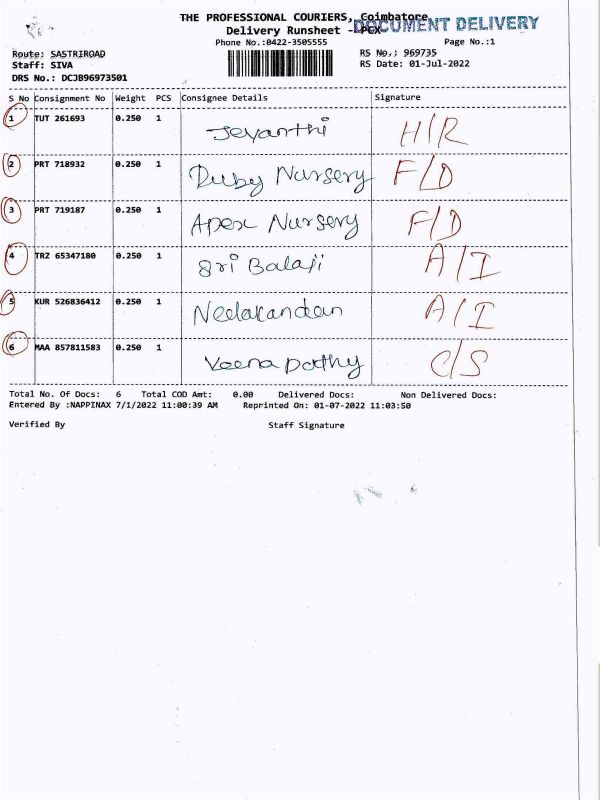 THE PROFESSIONAL COURIERS, Coimbatore
Delivery Runsheet - PCX
DOCUMENT DELIVERY
Phone No.:0422-3505555 Page No.:1
Route: SASTRIROAD RS No,; 969735
Staff: SIVA RS Date: 01-Jul-2022
DRS No.: DCJB96973501
S No Consignment No Weight PCS Consignee Details Signature
1 TUT 261693 0.250 1 Jeyanthi H/R
2 PRT 718932 0.250 1 Ruby Nursery F/D
3 PRT 719187 0.250 1 Apex Nursery F/D
4 TRZ 65347180 0.250 1 Sri Balaji A/I
5 KUR 526836412 0.250 1 Neelakandan A/I
6 MAA 857811583 0.250 1 Veena pathy C/S
Total No. Of Docs: 6 Total COD Amt: 0.00 Delivered Docs: Non Delivered Docs:
Entered By :NAPPINAX 7/1/2022 11:00:39 AM Reprinted On: 01-07-2022 11:03:50
Verified By Staff Signature